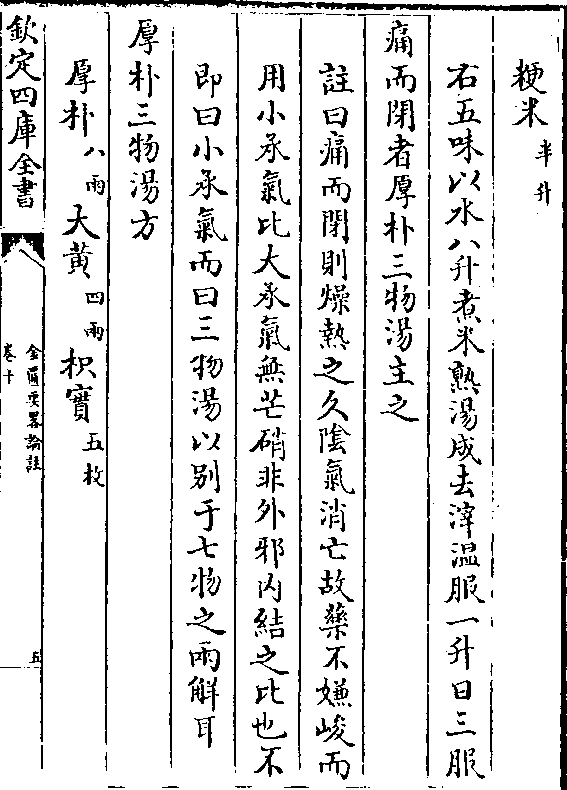 粳米半升
右五味以水八升煮米熟湯成去滓温服一升日三服
痛而閉者厚朴三物湯主之
註曰痛而閉則燥熱之久陰氣消亡故藥不嫌峻而
用小承氣比大承氣無芒硝非外邪内結之比也不
即曰小承氣而曰三物湯以别于七物之兩解耳
厚朴三物湯方
厚朴八兩 大黄四兩 枳實五枚
欽定四庫全書
金匱要畧論註
卷十
五